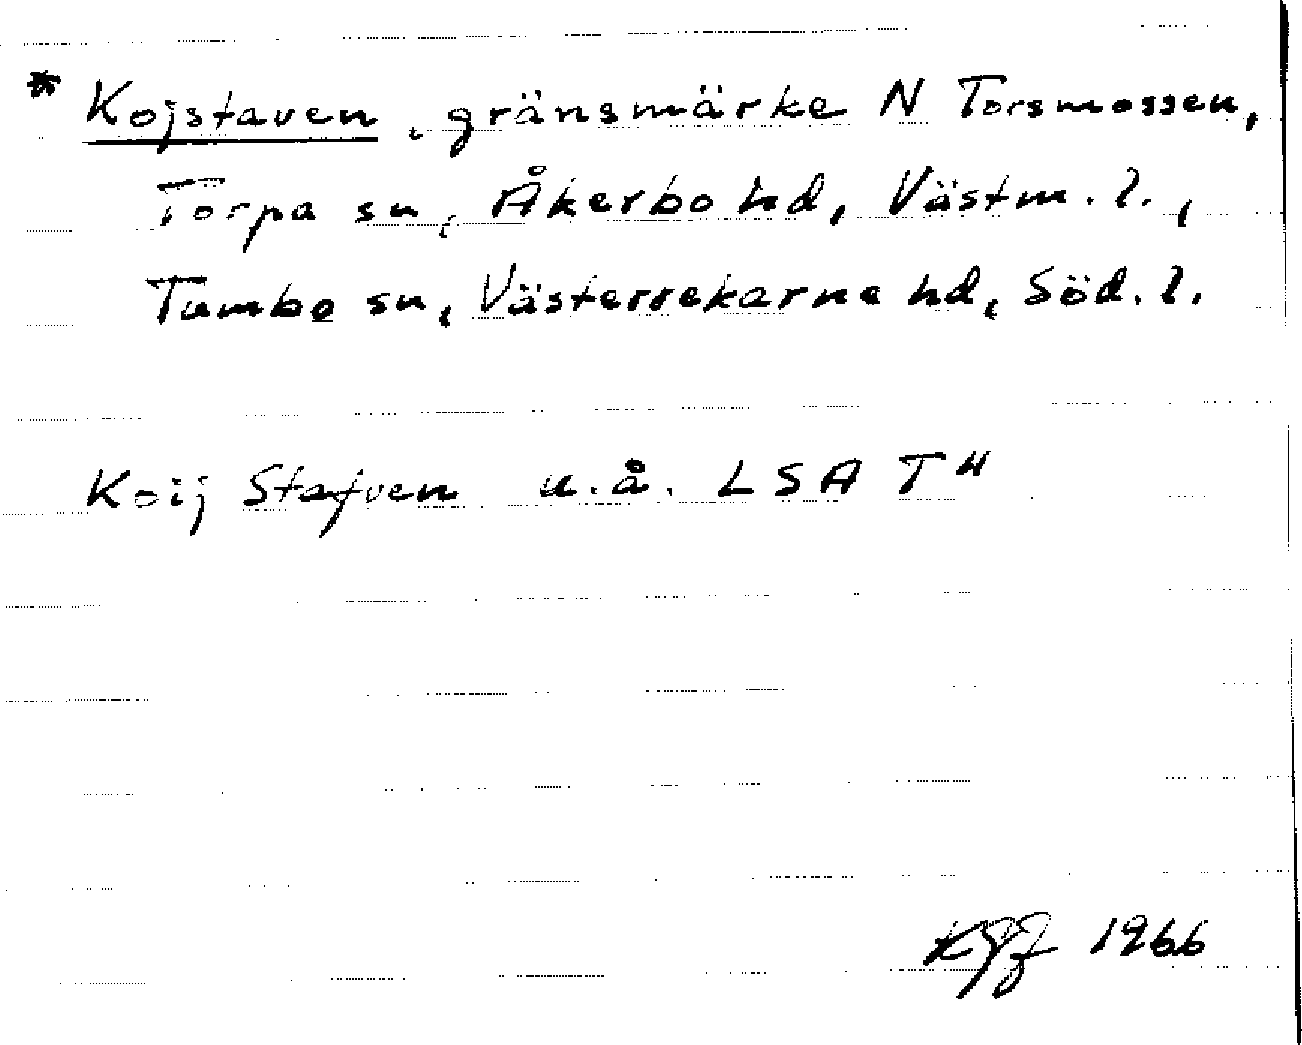 * Kojstaven, gränsmärke N Torsmossen,
Torpa sn, Åkerbo hd, Västm. l.,
Tumbo sn, Västerrekarne hd, Söd. l.
Koij Stafven u.å. LSA T"
1966